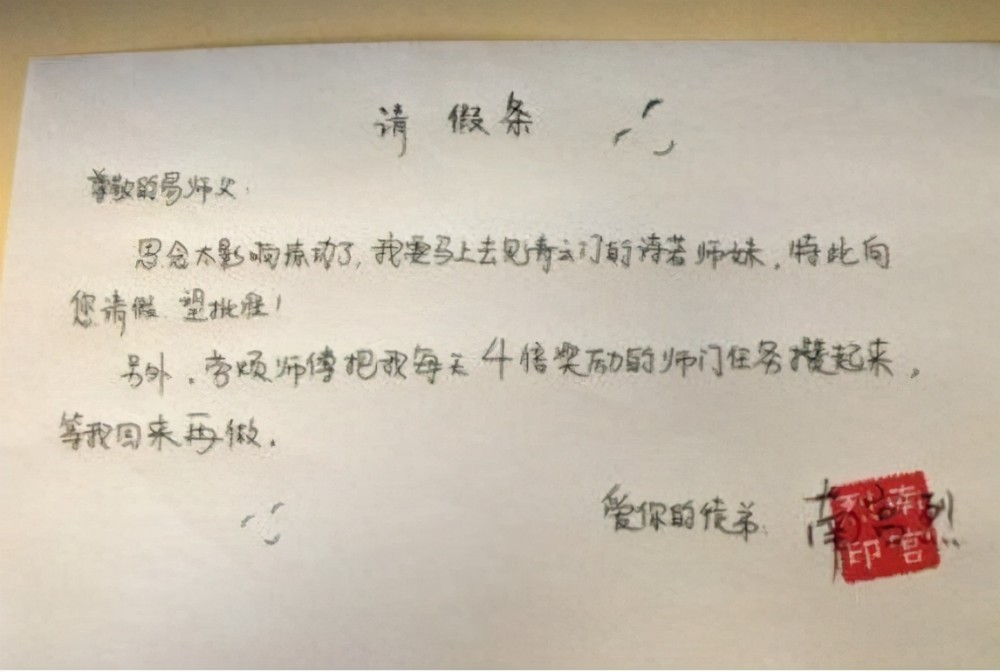 请假条
尊敬的易师父:
思念太影响流动了,我要马上去见青云门的诗若师妹,特此向
您请假 望批准!
另外,劳烦师傅把我每天4倍奖励的师门任务攒起来,
等我回来再做。
爱你的徒弟:南宫烈
南宫烈印